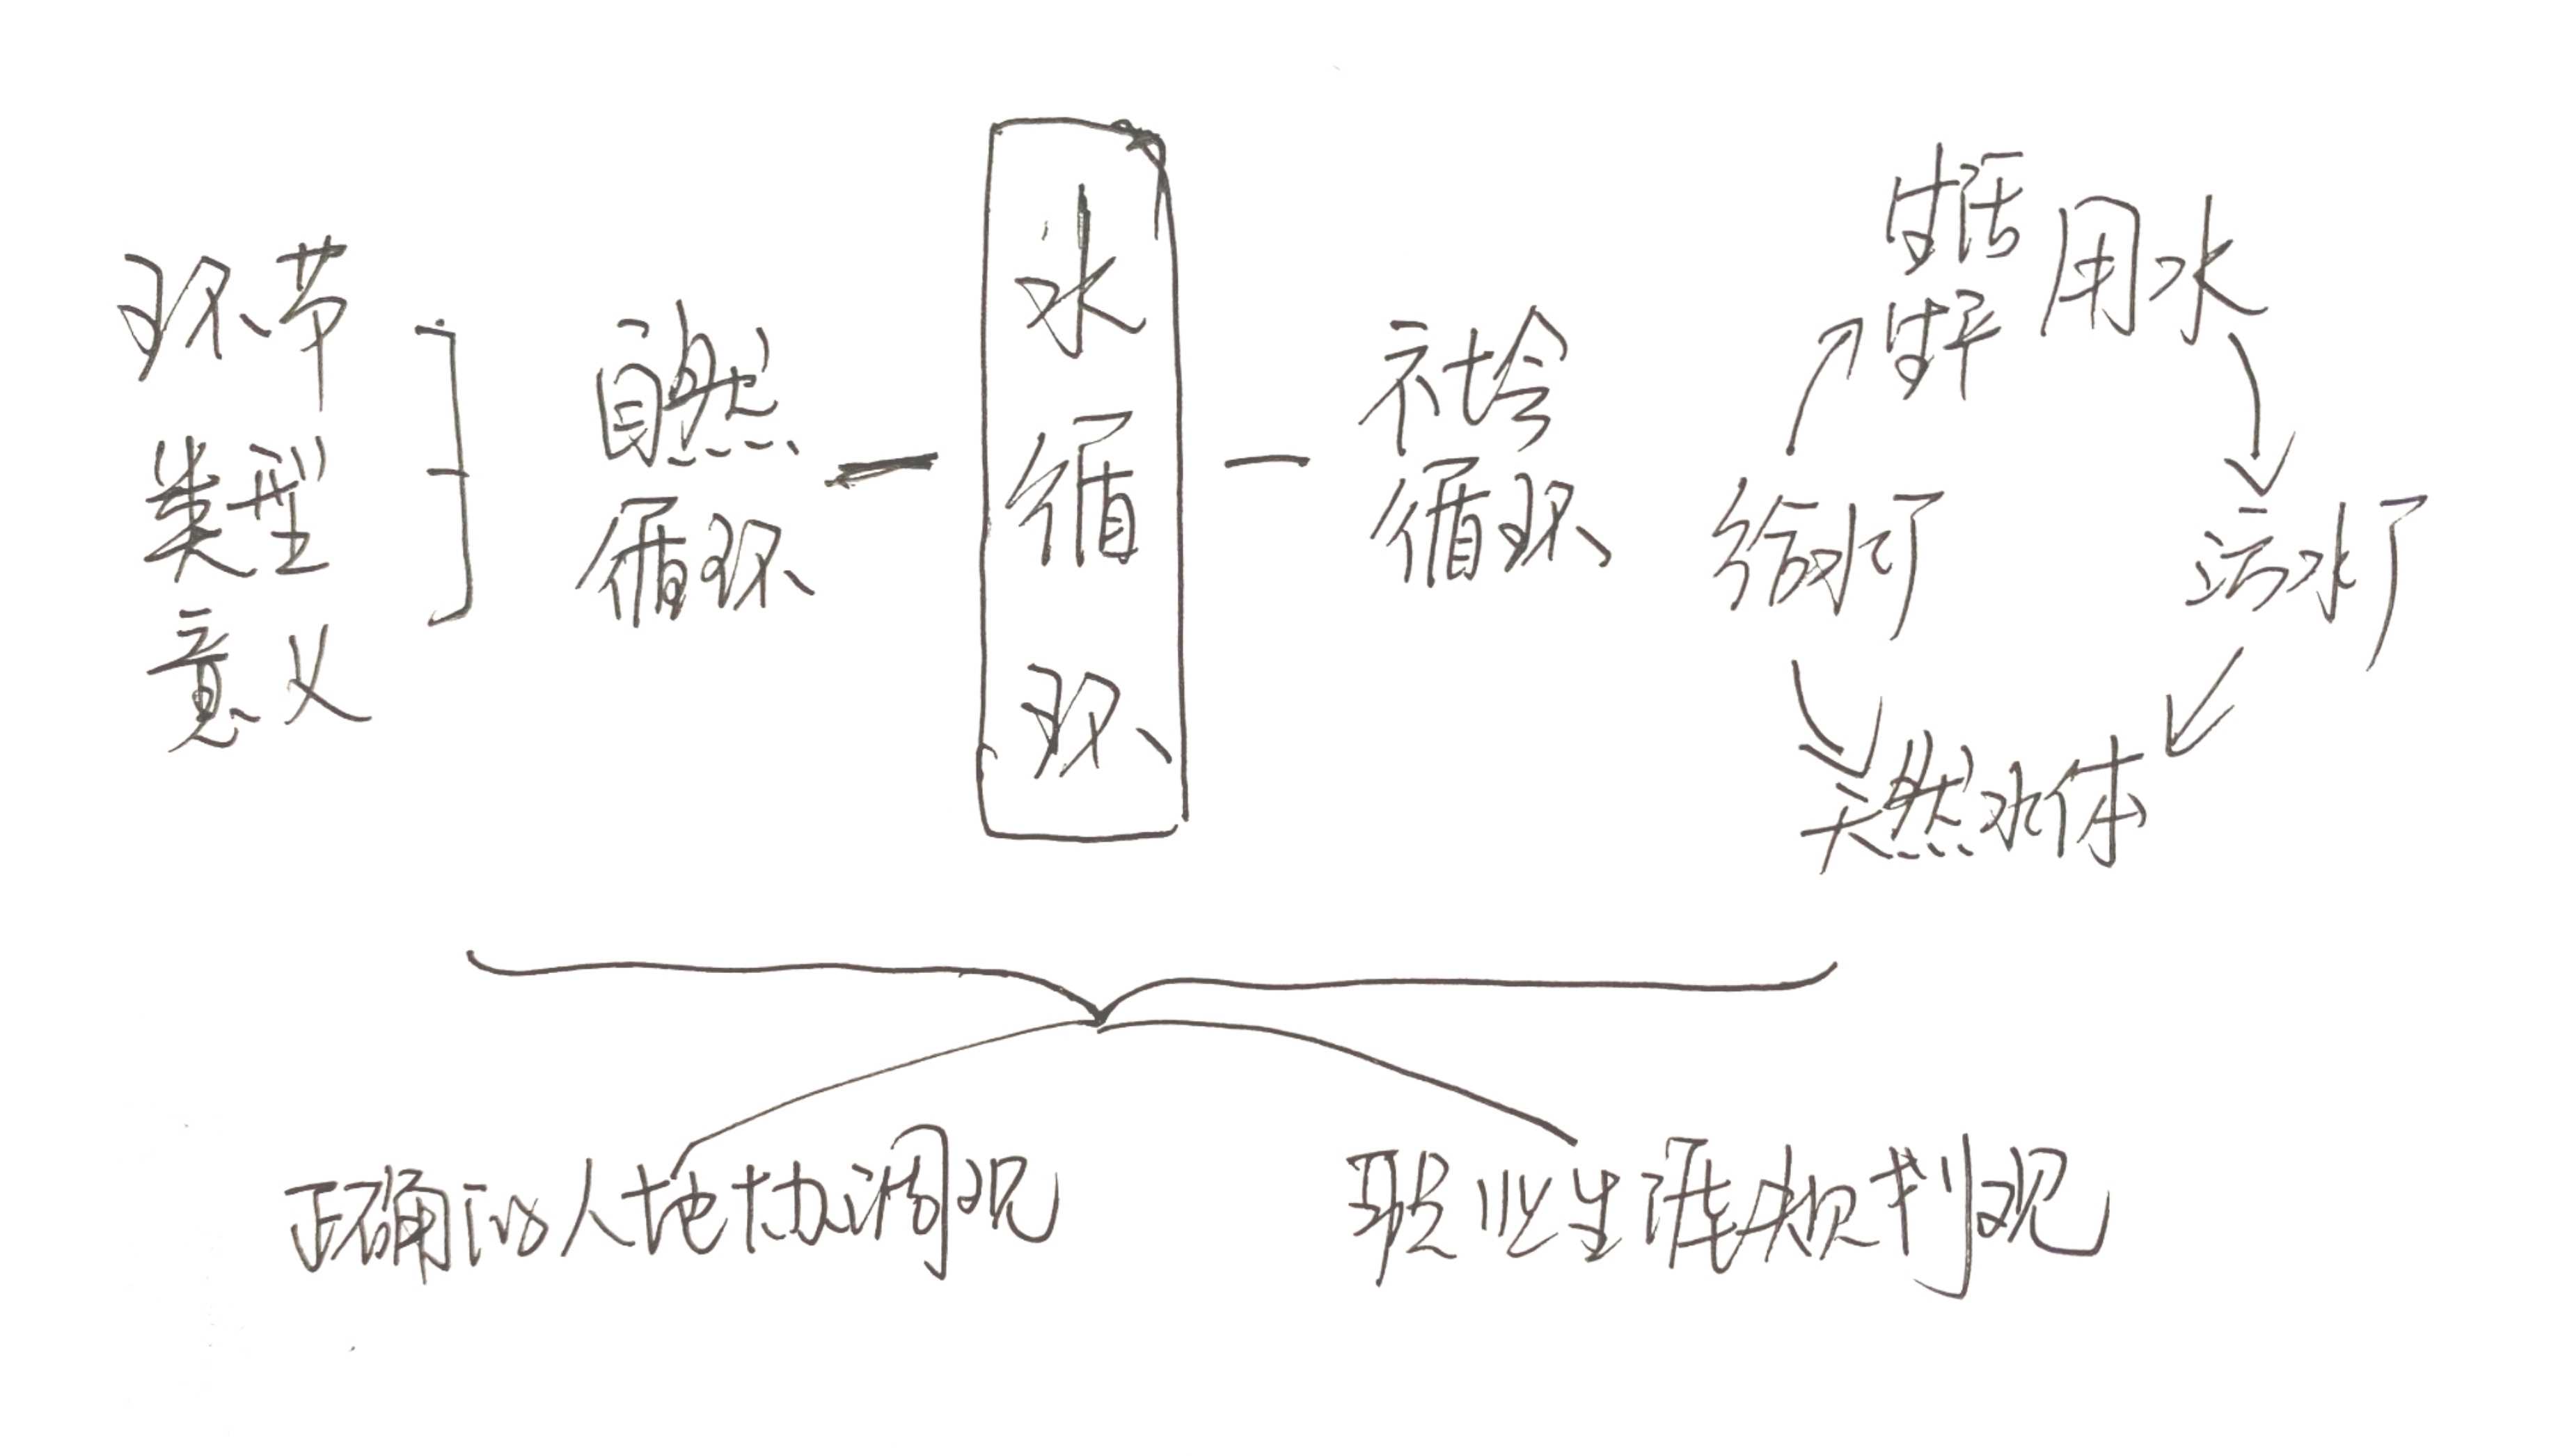 环节
类型
意义
自然
循环
水
循
环
社会
循环
生活
生产
用水
给水厂
污水厂
天然水体
正确的人地协调观
职业生涯规划观